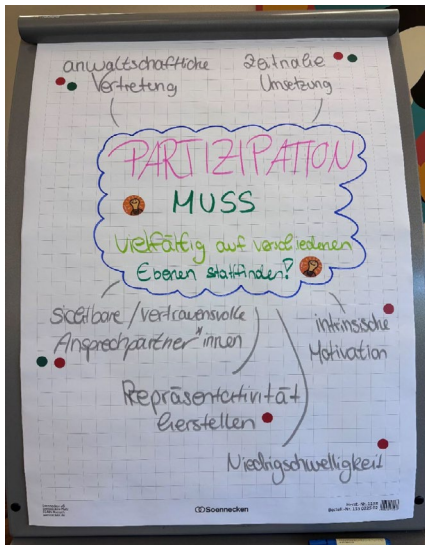 anwaltschaftliche
Vertretung
zeitnahe
Umsetzung
PARTIZIPATION
MUSS
vielfältig auf verschiedenen
Ebenen stattfinden?
sichtbare/vertrauensvolle
Ansprechpartner*innen
intrinsische
Motivation
Repräsentativität
herstellen
Niedrigschwelligkeit
Soennecken